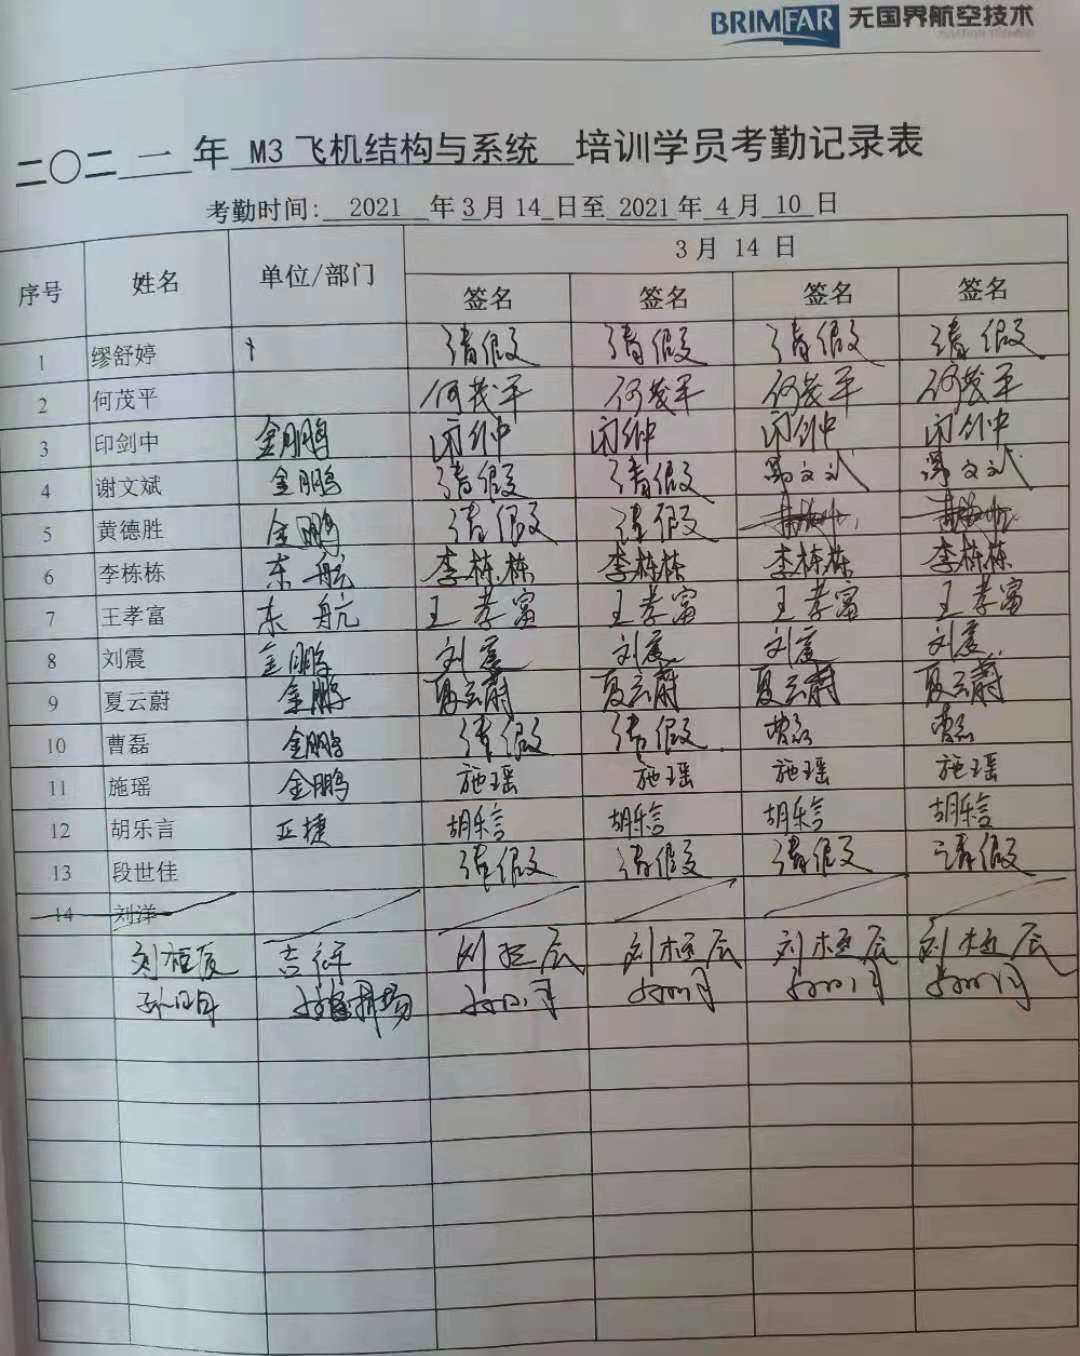 BRIMFAR 无国界航空技术
二〇二一年 M3飞机结构与系统 培训学员考勤记录表
考勤时间: 2021 年 3 月 14 日至 2021 年 4 月 10 日
序号 姓名 单位/部门 3 月 14 日
签名 签名 签名 签名
1 缪舒婷 请假 请假 请假 请假
2 何茂平 何茂平 何茂平 何茂平 何茂平
3 印剑中 金鹏
4 谢文斌 金鹏 请假 请假
5 黄德胜 金鹏 请假 请假
6 李栋栋 东航 李栋栋 李栋栋 李栋栋 李栋栋
7 王孝富 东航 王孝富 王孝富 王孝富 王孝富
8 刘震 金鹏 刘震 刘震 刘震 刘震
9 夏云蔚 金鹏 夏云蔚 夏云蔚 夏云蔚 夏云蔚
10 曹磊 金鹏 请假 请假 曹磊 曹磊
11 施瑶 金鹏 施瑶 施瑶 施瑶 施瑶
12 胡乐言 正捷 胡乐言 胡乐言 胡乐言 胡乐言
13 段世佳 请假 请假 请假 请假
14 刘洋
刘桓辰 吉祥 刘桓辰 刘桓辰 刘桓辰 刘桓辰